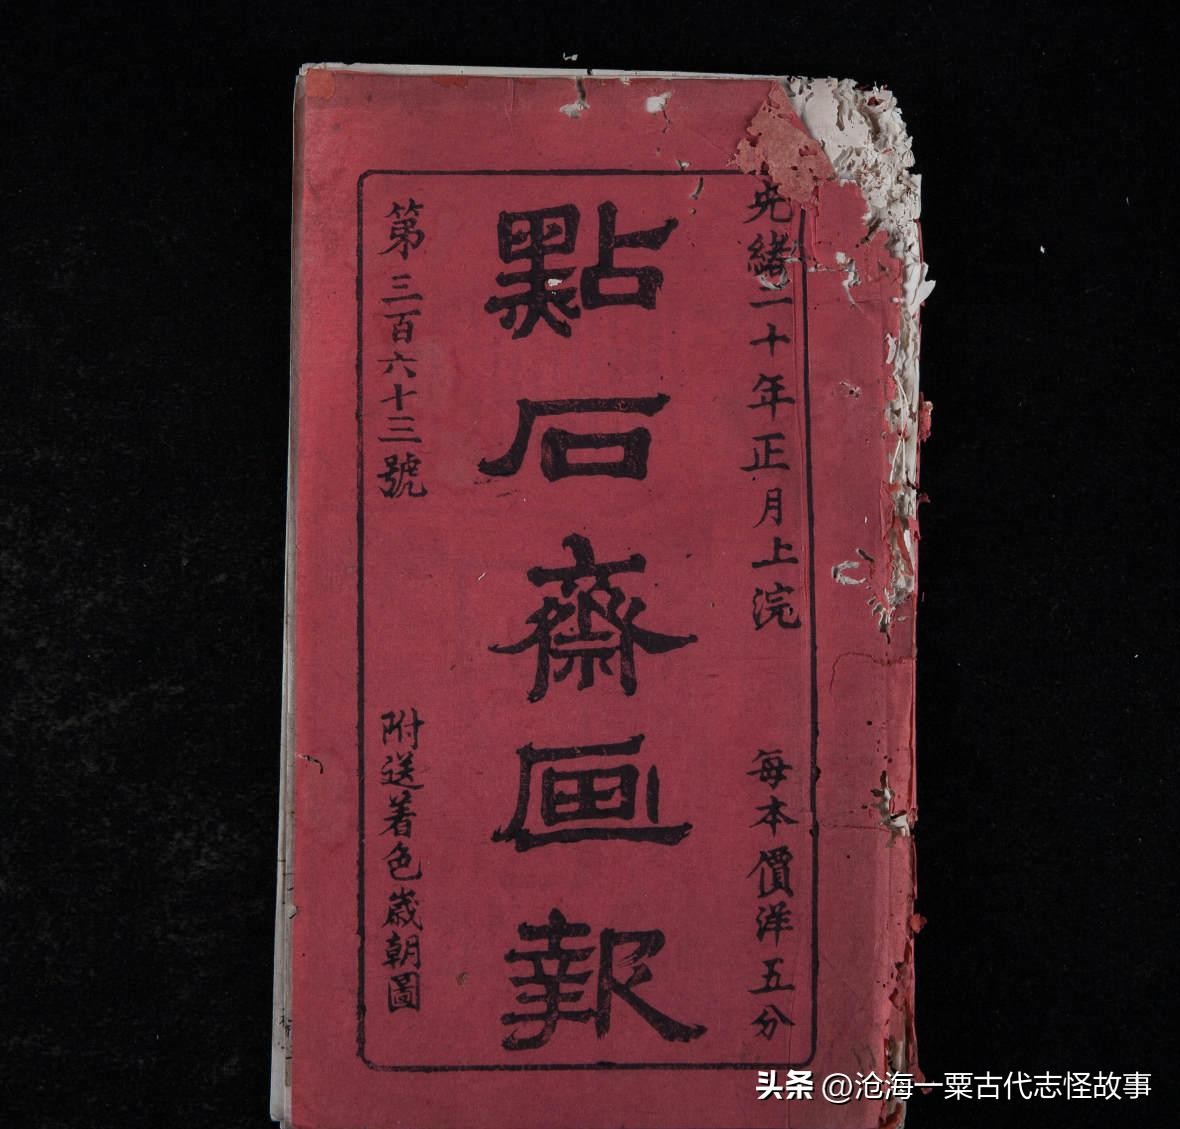 光緒二十年正月上浣
每本價洋五分
點石齋画報
第三百六十三號
附送着色歲朝圖
头条 @沧海一粟古代志怪故事